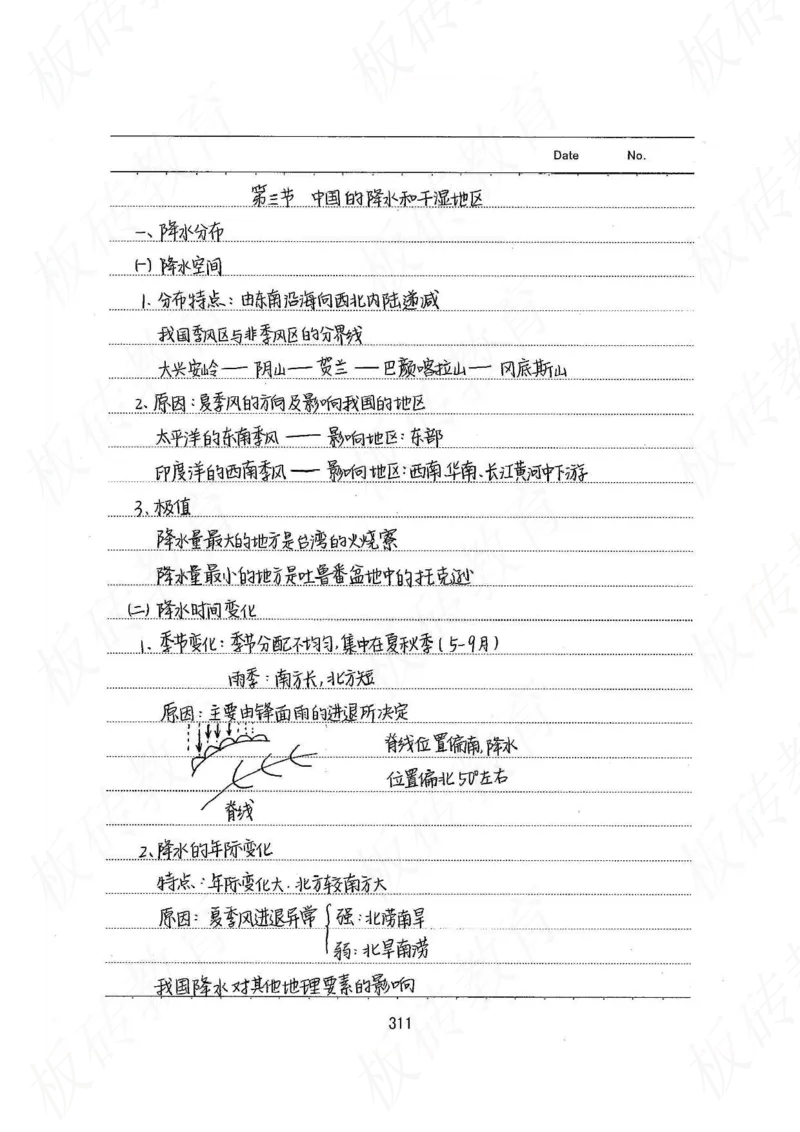 Date No.
第三节 中国的降水和干湿地区
一、降水分布
(一) 降水空间
1. 分布特点：由东南沿海向西北内陆递减
我国季风区与非季风区的分界线
大兴安岭——阴山——贺兰——巴颜喀拉山——冈底斯山
2、原因：夏季风的方向及影响我国的地区
太平洋的东南季风——影响地区：东部
印度洋的西南季风——影响地区：西南、华南、长江黄河中下游
3、极值
降水量最大的地方是台湾的火烧寮
降水量最小的地方是吐鲁番盆地中的托克逊
(二) 降水时间变化
1、季节变化：季节分配不均匀，集中在夏秋季(5-9月)
雨季：南方长，北方短
原因：主要由锋面雨的进退所决定
脊线位置偏南，降水
位置偏北5°左右
脊线
2、降水的年际变化
特点：年际变化大．北方较南方大
原因：夏季风进退异常 强：北涝南旱
弱：北旱南涝
我国降水对其他地理要素的影响
311
板砖教育